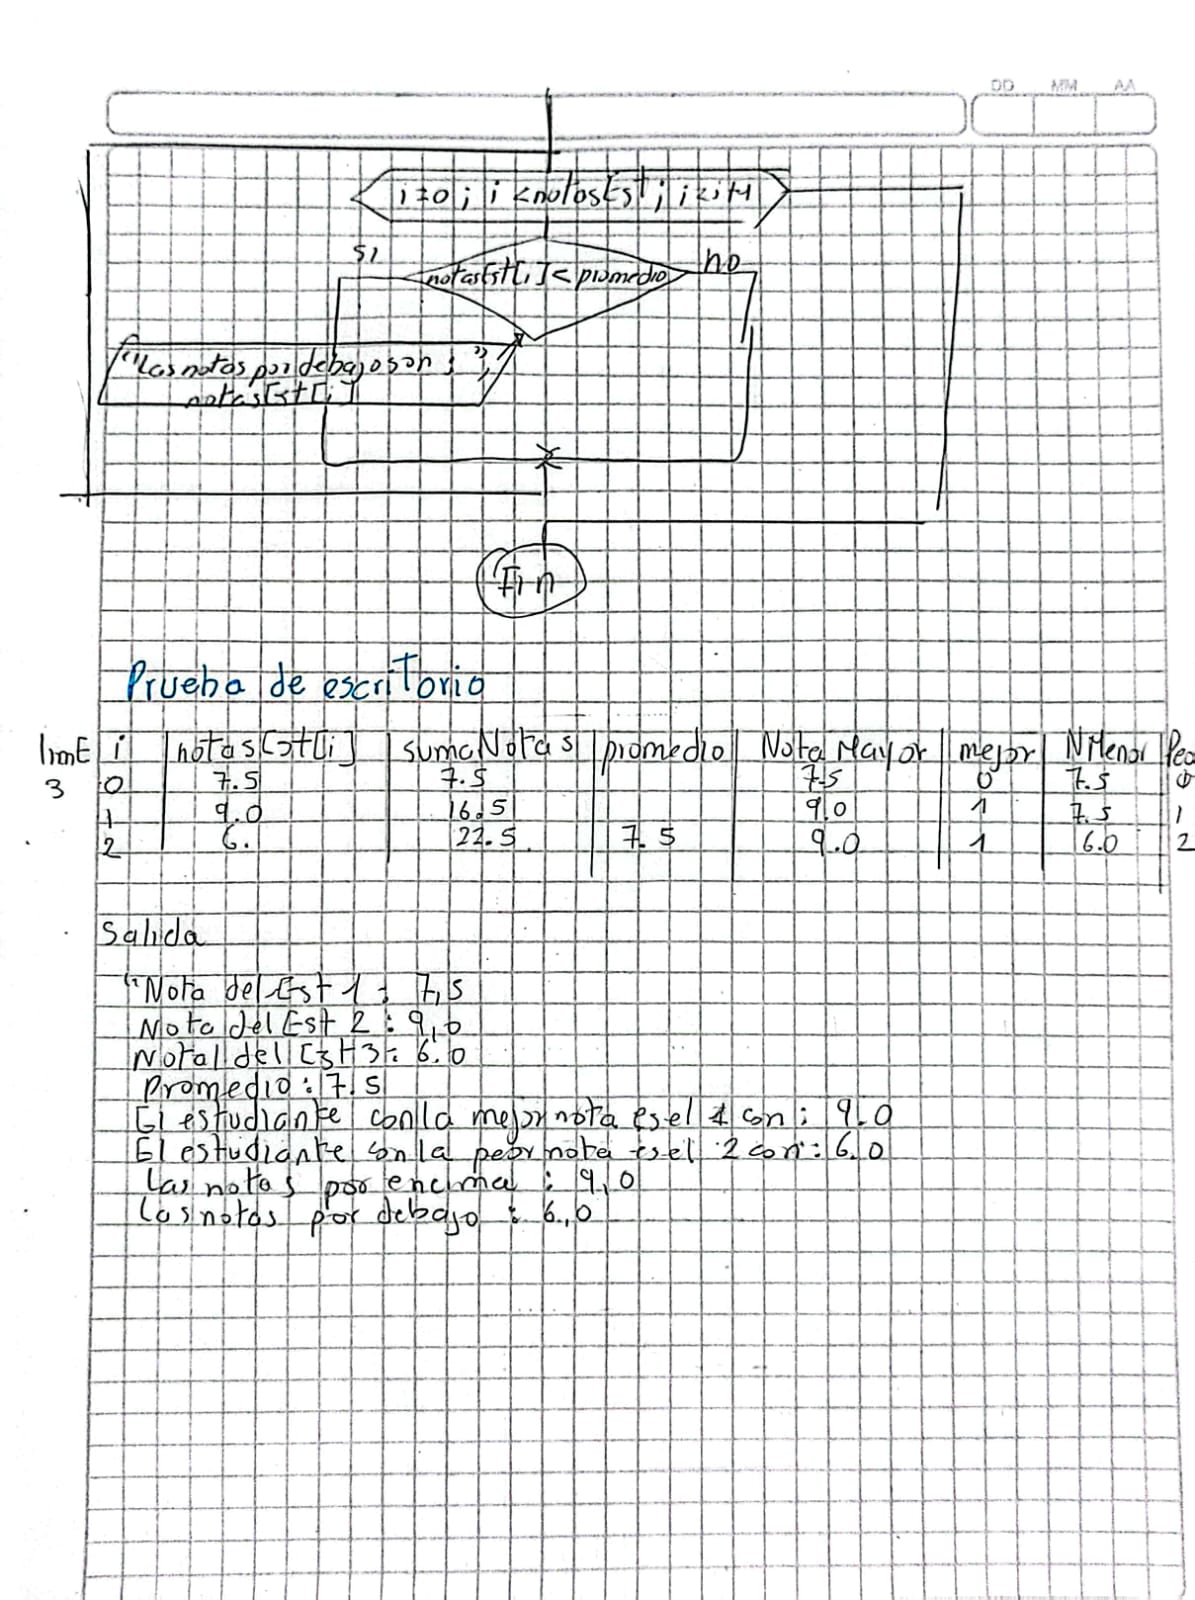 DD MM AA
i=0 ; i <notasEst ; i<i+1
Si
no
notasEst[i] < promedio
"Las notas por debajo son : ",
notasEst[i]
Fin
Prueba de escritorio
limE i notasEst[i] sumaNotas promedio Nota Mayor mejor NMenor Peo
3 0 7.5 7.5 7.5 0 7.5 0
1 9.0 16.5 9.0 1 7.5 1
2 6. 22.5 7.5 9.0 1 6.0 2
Salida
"Nota del Est 1 : 7,5
Nota del Est 2 : 9,0
Notal del Est 3 : 6.0
Promedio : 7.5
El estudiante con la mejor nota es el 1 con : 9.0
El estudiante con la peor nota es el 2 con : 6.0
Las notas por encima : 9,0
Las notas por debajo : 6.,0